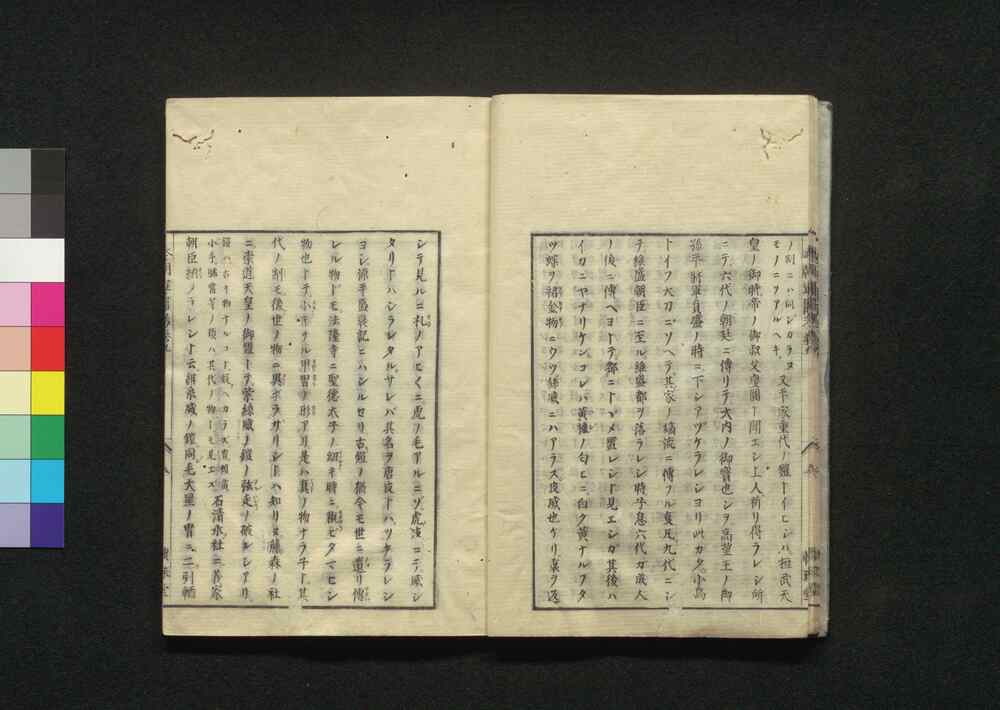 ノ制ニハ同シカラヌ
モノニアルヘキ
又平家重代ノ鎧トイヒシハ桓武天
皇ノ御時帝ノ御叔父皇圓ト聞エシ上人祈リ得ラレシ所
ニテ六代ノ朝廷ニ傳リテ大内ノ御寳也シヲ高望王ノ御
孫平將軍貞盛ノ時ニ下シアヅケラレシヨリ此カタ小烏
トイフ大刀ニソヘテ其家ノ嫡流ニ傳フル夏凡九代ニシ
テ維盛朝臣ニ至ル維盛都ヲ落ラレシ時子息六代カ成人
ノ後ニ傳ヘヨトテ都ニトヾメ置レシト見エシガ其後ハ
イカニヤナリケンコレバ黄櫨ノ匂ヒニ白ク黄ナルフタ
ツ蝶ヲ裾金物ニウツ絲威ニハアラス皮威也ケリ裏ヲ返
シテ見ルニ札ノアヒ〱ニ虎ノ毛アルニゾ虎皮ニテ威シ
タリトハシラレタルサレバ其名ヲ唐皮トハツケラレシ
ヨシ源平盛衰記ニハシルセリ古鎧ノ猶今モ世ニ遺リ傳
レル物ドモ法隆寺ニ聖德太子ノ幼キ時ニ擐ヒタマヒシ
物也トテ小キナル甲冑ノ形アリ是ハ真ノ物ナラ子ト其
代ノ制モ後世ノ物ニ異ナラザリシトハ知リヌ藤森ノ社
ニ崇道天皇ノ御鎧トテ紫絲威ノ鎧ノ弦走ノ破レシアリ
鎧ハ古キ物ナルコト疑ヘカラス
小手臑當等ノ類ハ其代ノ物トモ見エス
石清水社ニ義家
朝臣納ノラレシト云緋絲威ノ鎧同毛大星ノ冑ニ二引輛